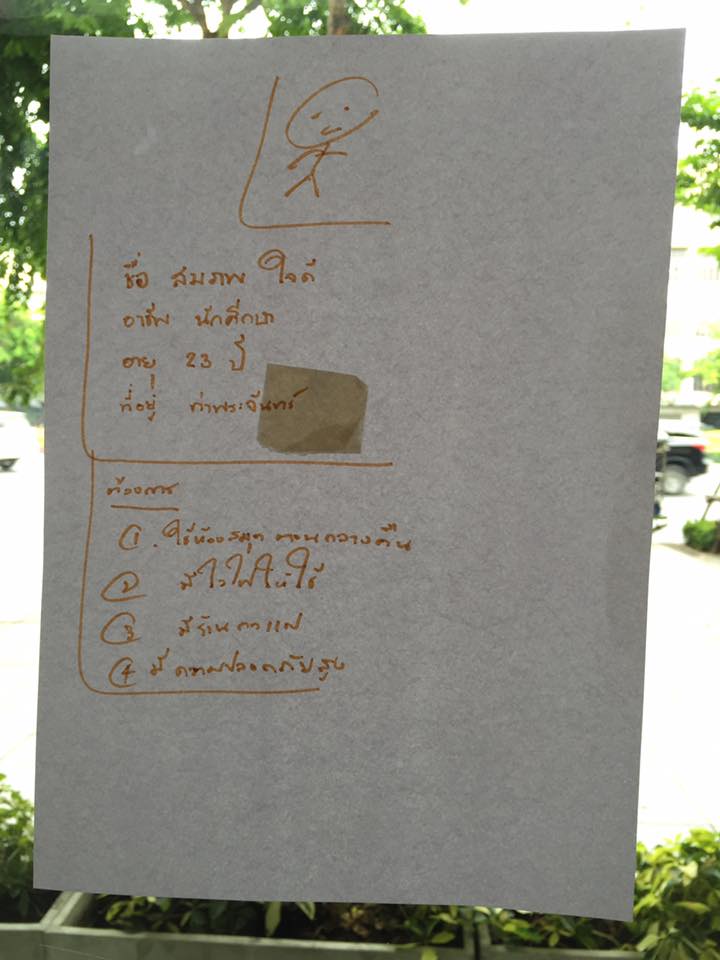 ชื่อ สมภพ ใจดี
อาชีพ นักศึกษา
อายุ 23 ปี
ที่อยู่ ท่าพระจันทร์
ต้องการ
1. ใช้ห้องสมุดตอนกลางคืน
2 มีไวไฟให้ใช้
3 มีร้านกาแฟ
4 มีความปลอดภัยสูง